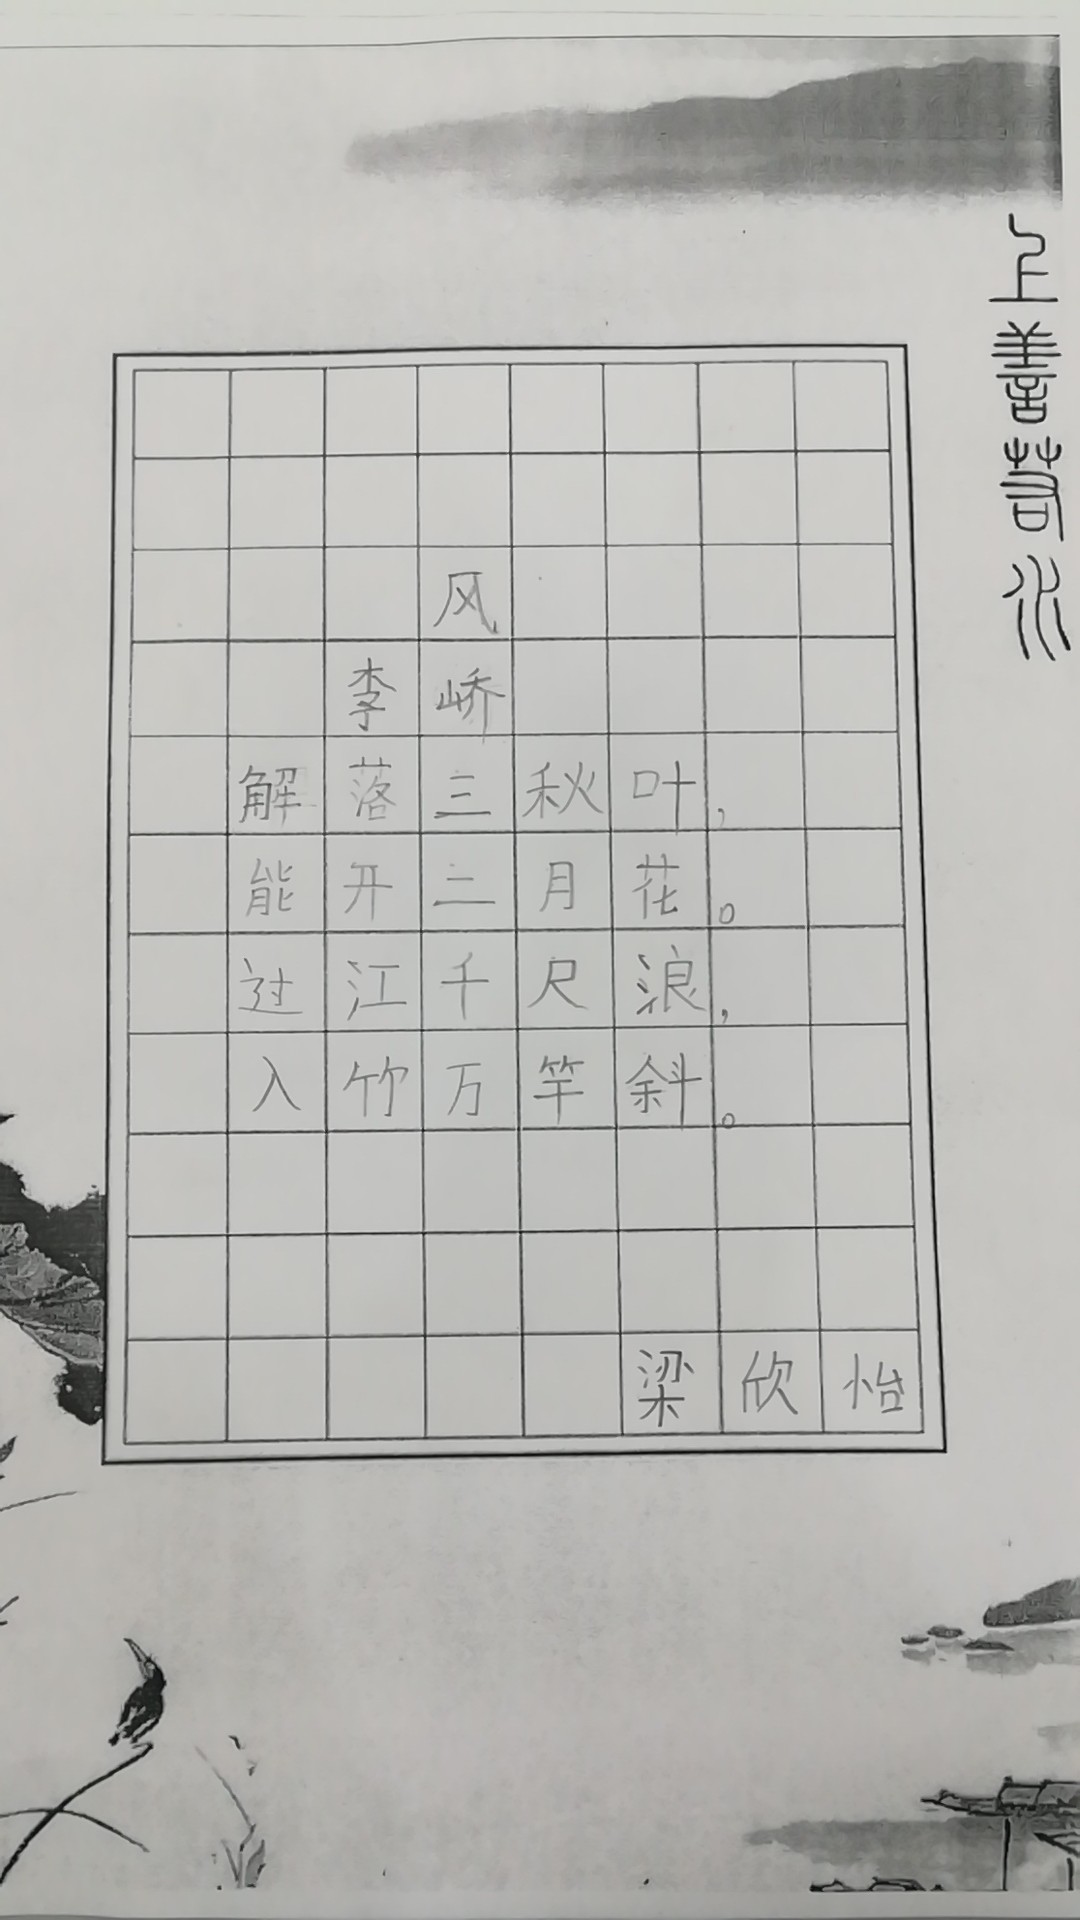 上善若水
风
李峤
解落三秋叶，
能开二月花。
过江千尺浪，
入竹万竿斜。
梁欣怡